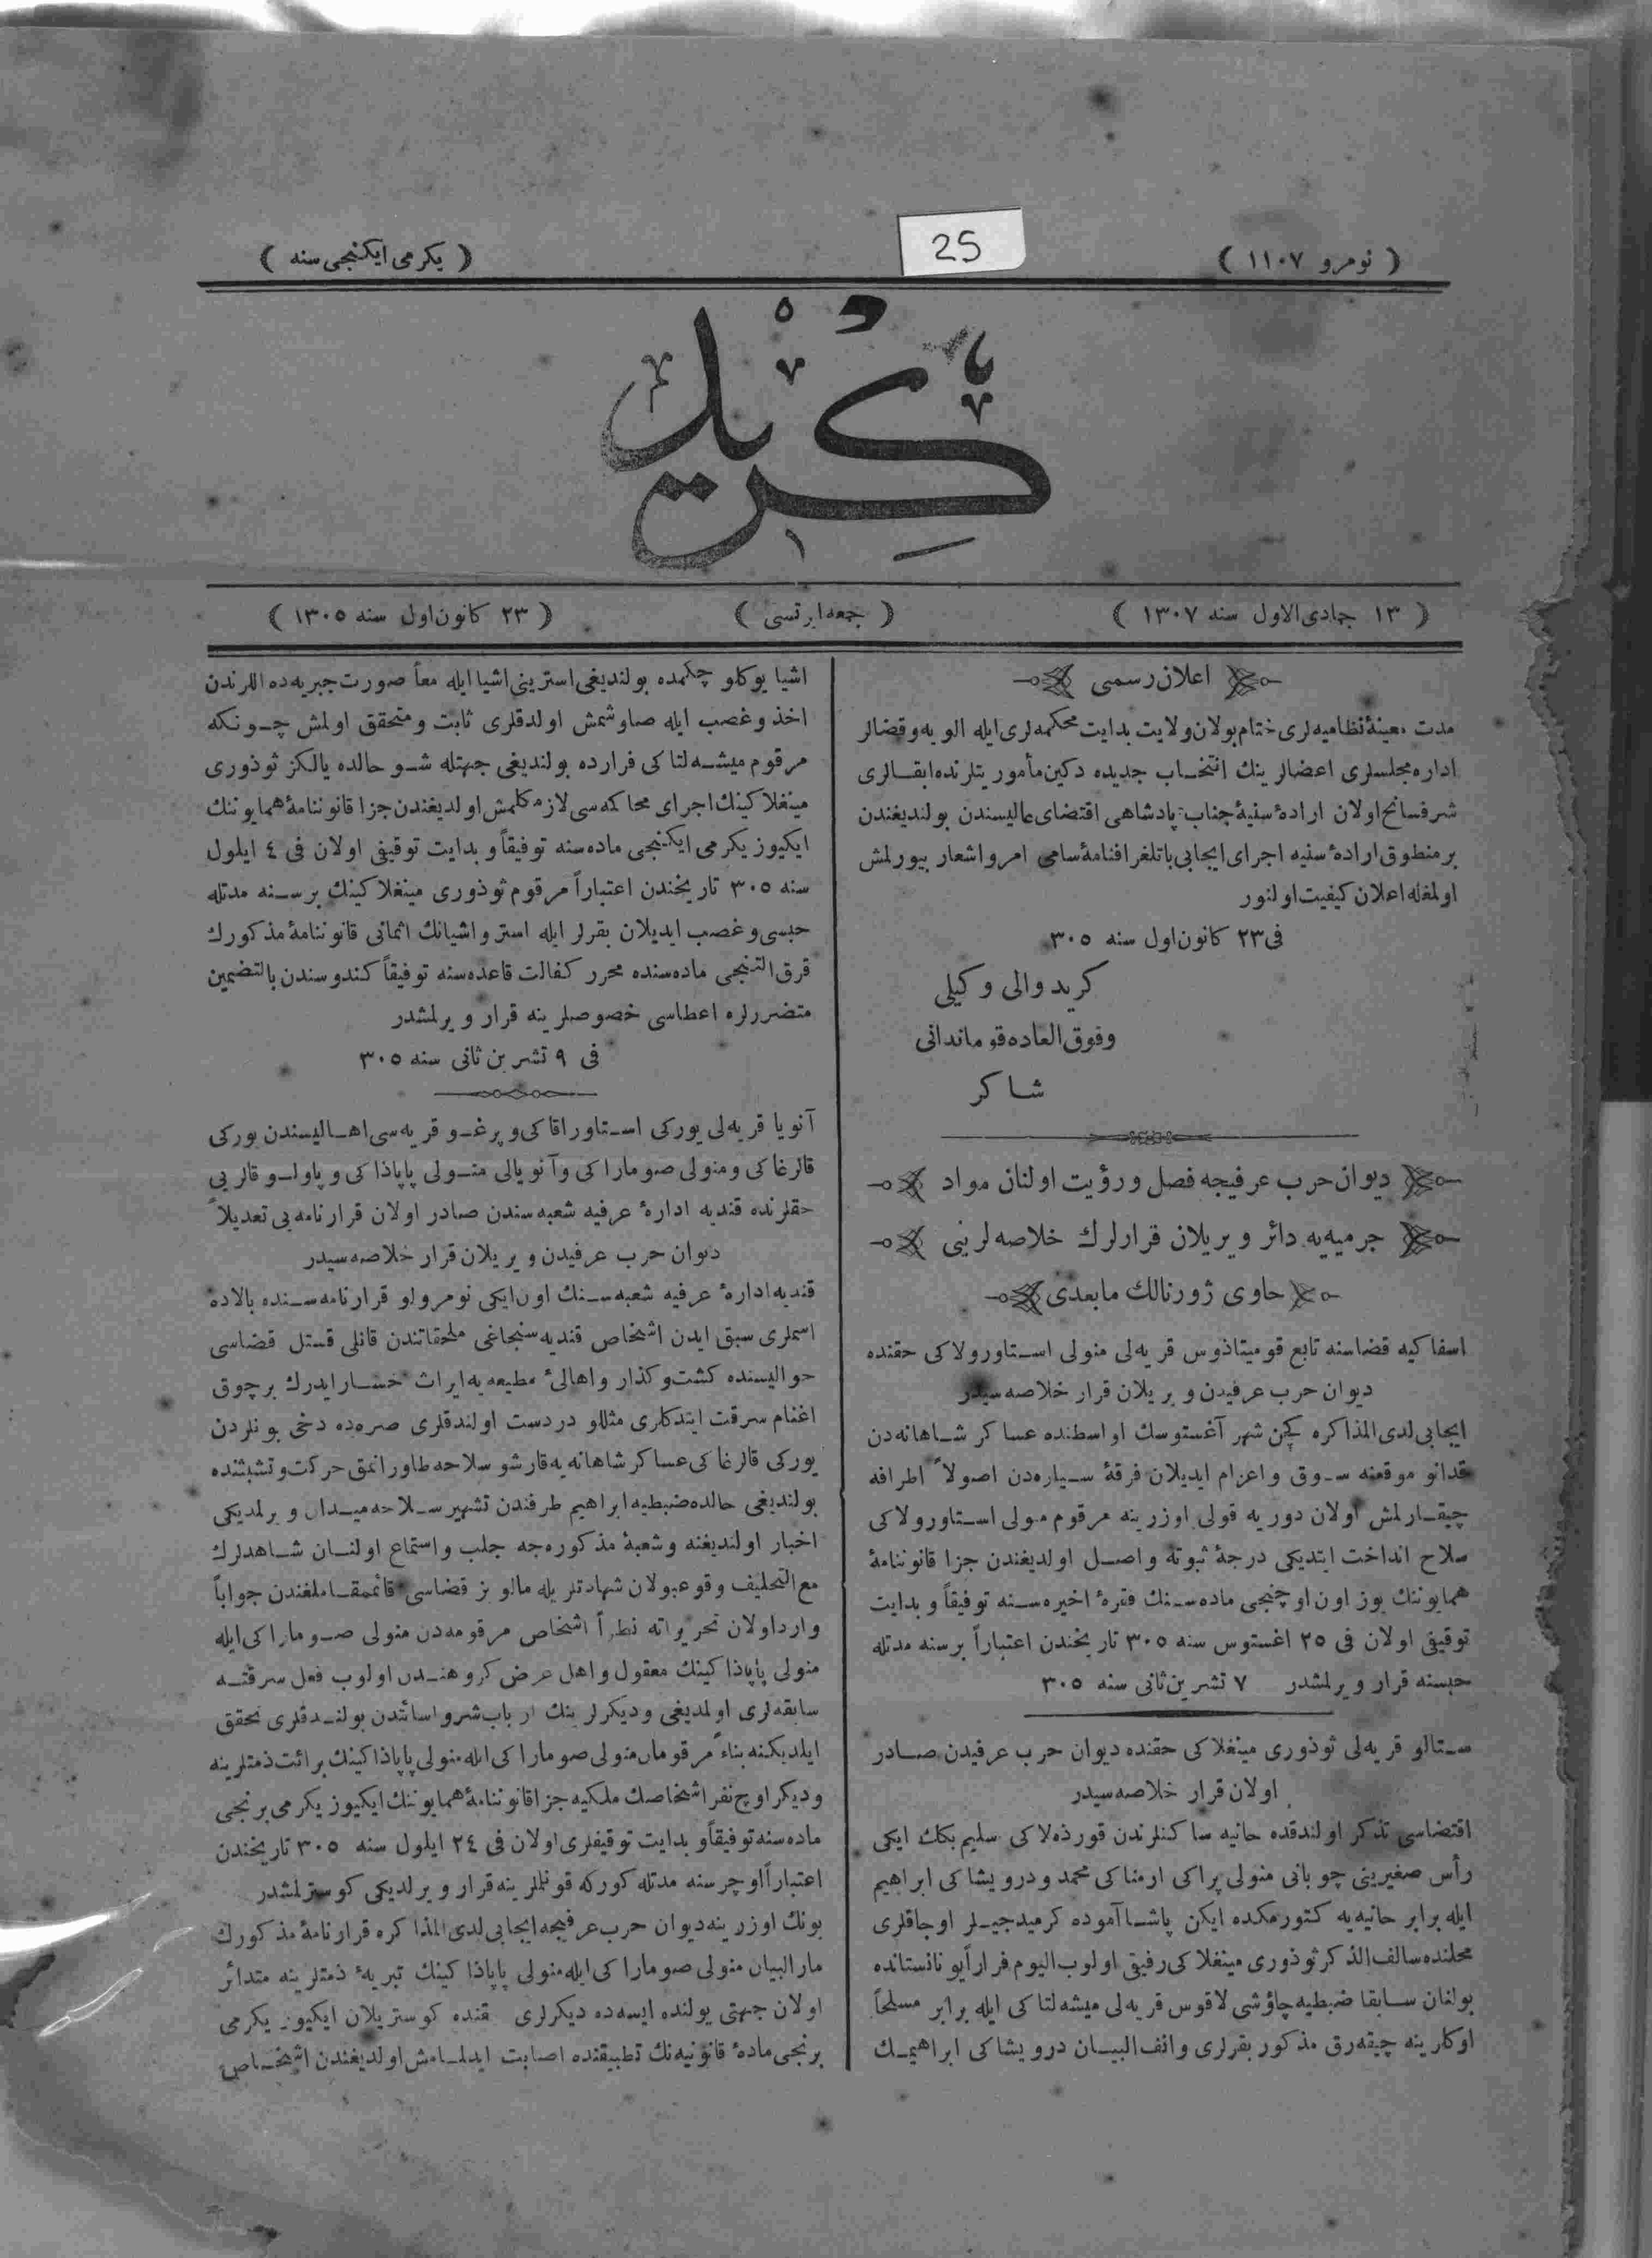 ( نومرو ١١٠٧ )
25
( یکرمی ایکنجی سنه )
کرید
( ١٣ جمادی‌الاول سنه ١٣٠٧ )
( جمعه ایرتسی )
( ٢٣ کانون‌اول سنه ١٣٠٥ )
اعلان رسمی
مدت معینهٔ نظامیه‌لری ختام بولان ولایت بدایت محکمه‌لری ایله الویه و قضالر
اداره مجلسلری اعضالرینك انتخاب جدیده دکین مأموریتلرنده ابقالری
شرفسانح اولان ارادهٔ سنیهٔ جناب پادشاهی اقتضای عالیسندن بولندیغندن
بر منطوق ارادهٔ سنیه اجرای ایجابی با تلغرافنامهٔ سامی امر و اشعار بیورلمش
اولمغله اعلان کیفیت اولنور
فی ٢٣ کانون اول سنه ٣٠٥
کرید والی وکیلی
وفوق العاده قوماندانی
شاکر
دیوان حرب عرفیجه فصل و رؤیت اولنان مواد
جرمیه‌یه دائر ویریلان قرارلرك خلاصه‌لرینی
حاوی ژورنالك مابعدی
اسفاکیه قضاسنه تابع قومیتاذوس قریه‌لی منولی استاورولاکی حقنده
دیوان حرب عرفیدن ویریلان قرار خلاصه سیدر
ایجابی لدی المذاکره کچن شهر آغستوسك اواسطنده عساکر شاهانه‌دن
قدانو موقعنه سوق و اعزام ایدیلان فرقهٔ سیاره‌دن اصولاً اطرافه
چیقارلمش اولان دوریه قولی اوزرینه مرقوم منولی استاورولاکی
سلاح انداخت ایتدیکی درجهٔ ثبوته واصل اولدیغندن جزا قانوننامهٔ
همایوننك یوز اون اوچنجی ماده‌سنك فقرهٔ اخیره‌سنه توفیقاً و بدایت
توقیفی اولان فی ٢٥ اغستوس سنه ٣٠٥ تاریخندن اعتباراً برسنه مدتله
حبسنه قرار ویرلمشدر ٧ تشرین ثانی سنه ٣٠٥
ستالو قریه‌لی ثوذوری مینغلاکی حقنده دیوان حرب عرفیدن صادر
اولان قرار خلاصه سیدر
اقتضاسی تذکر اولندقده حانیه ساکنلرندن قورذه‌لاکی سلیم بکك ایکی
رأس صغیرینی چوبانی منولی پراکی ارمناکی محمد و درویشاکی ابراهیم
ایله برابر حانیه‌یه کتورمکده ایکن پاشا آموده کرمیدجیلر اوجاقلری
محلنده سالف الذکر ثوذوری مینغلاکی رفیقی اولوب الیوم فراراً یونانستانده
بولنان سابقا ضبطیه چاؤشی لاقوس قریه‌لی میشه‌لتاکی ایله برابر مسلحاً
اوکارینه چیقه‌رق مذکور بقرلری و انف البیان درویشاکی ابراهیمك
اشیا یوکلو چکمده بولندیغی استرینی اشیا ایله معاً صورت جبریه‌ده اللرندن
اخذ وغصب ایله صاوشمش اولدقلری ثابت و متحقق اولمش چونکه
مرقوم میشه‌لتاکی فرارده بولندیغی جهتله شو حالده یالکز ثوذوری
مینغلاکینك اجرای محاکمه‌سی لازمکلمش اولدیغندن جزا قانوننامهٔ همایوننك
ایکیوز یکرمی ایکنجی ماده‌سنه توفیقاً و بدایت توقیفی اولان فی ٤ ایلول
سنه ٣٠٥ تاریخندن اعتباراً مرقوم ثوذوری مینغلاکینك برسنه مدتله
حبسی و غصب ایدیلان بقرلر ایله استر و اشیانك اثمانی قانوننامهٔ مذکورك
قرق التنجی ماده‌سنده محرر کفالت قاعده‌سنه توفیقاً کندوسندن بالتضمین
متضررلره اعطاسی خصوصلرینه قرار ویرلمشدر
فی ٩ تشرین ثانی سنه ٣٠٥
آنویا قریه‌لی یورکی استاوراقاکی و پرغو قریه‌سی اهالیسندن یورکی
قالرغاکی و منولی صوماراکی و آنویالی منولی پاپاذاکی و پاولو قالربی
حقلرنده قندیه ادارهٔ عرفیه شعبه‌سندن صادر اولان قرارنامه‌یی تعدیلاً
دیوان حرب عرفیدن ویریلان قرار خلاصه سیدر
قندیه ادارهٔ عرفیه شعبه‌سنك اون ایکی نومرولو قرارنامه‌سنده بالاده
اسملری سبق ایدن اشخاص قندیه سنجاغی ملحقاتندن قانلی قستل قضاسی
حوالیسنده کشت و کذار و اهالیٔ مطیعه‌یه ایراث خسار ایدرك برچوق
اغنام سرقت ایتدکاری مثللو دردست اولندقلری صره‌ده دخی بونلردن
یورکی قالرغاکی عساکر شاهانه‌یه قارشو سلاحه طاورانمق حرکت و تشبثنده
بولندیغی حالده ضبطیه ابراهیم طرفندن تشهیر سلاحه میدان ویرلمدیکی
اخبار اولندیغنه و شعبهٔ مذکوره‌جه جلب و استماع اولنان شاهدلرك
مع التحلیف وقوعبولان شهادتلریله مالویز قضاسی قائممقاملغندن جواباً
وارد اولان تحریراته نظراً اشخاص مرقومه‌دن منولی صوماراکی ایله
منولی پاپاذاکینك معقول و اهل عرض کروهندن اولوب فعل سرقته
سابقه‌لری اولمدیغی و دیکرلرینك ارباب شر و اسائتدن بولندقلری تحقق
ایلدیکنه بناءً مرقومان منولی صوماراکی ایله منولی پاپاذاکینك برائت ذمتلرینه
ودیکر اوچ نفر اشخاصك ملکیه جزا قانوننامهٔ همایوننك ایکیوز یکرمی برنجی
ماده‌سنه توفیقاً و بدایت توقیفلری اولان فی ٢٤ ایلول سنه ٣٠٥ تاریخندن
اعتباراً اوچر سنه مدتله کورکه قونلملرینه قرار ویرلدیکی کوسترلمشدر
بونك اوزرینه دیوان حرب عرفیجه ایجابی لدی المذاکره قرارنامهٔ مذکورك
مارالبیان منولی صوماراکی ایله منولی پاپاذاکینك تبریهٔ ذمتلرینه متدائر
اولان جهتی یولنده ایسه‌ده دیکرلری قنده کوستریلان ایکیوز یکرمی
برنجی مادهٔ قانونیه‌نك تطبیقنده اصابت ایدلمامش اولدیغندن اشخاص